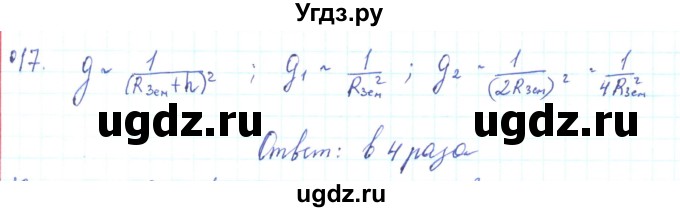 Угдз.ру
017. g ~ 1/(Rзем+h)² ; g₁ ~ 1/Rзем² ; g₂ ~ 1/(2Rзем)² ~ 1/4Rзем²
ugdz.ru ugdz.ru
Ответ: в 4 раза
ugdz.ru